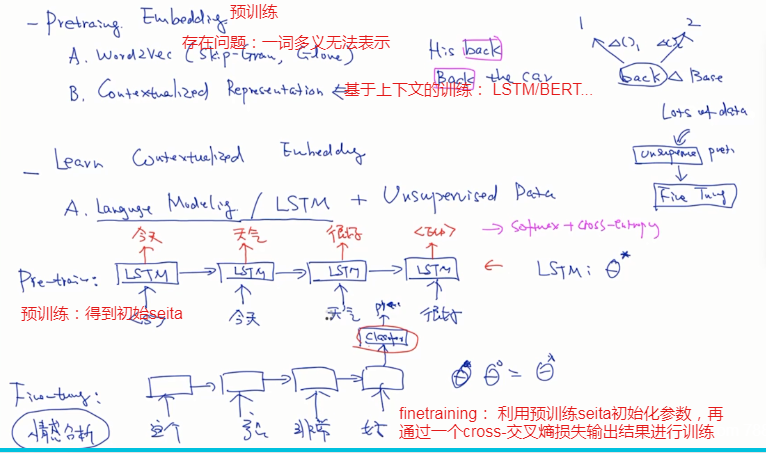 - Pretraing Embedding 预训练
存在问题：一词多义无法表示
A. Word2Vec (Skip-Gram, Glove)
His back
Back the car
1 2
back △ Base
B. Contextualized Representation ← 基于上下文的训练： LSTM/BERT...
Lots of data
Unsupervise
Fine Tuning
- Learn Contextualized Embeddig
A. Language Modeling / LSTM + Unsupervised Data
今天 天气 很好 → softmax + cross-entropy
Pre-train: LSTM → LSTM → LSTM → LSTM ← LSTM: θ*
预训练：得到初始seita
<s> 今天 天气 很好
Classifier
Fine-tuning:
θ⁰ =
情感分析
这个 非常
finetraining： 利用预训练seita初始化参数，再
通过一个cross-交叉熵损失输出结果进行训练